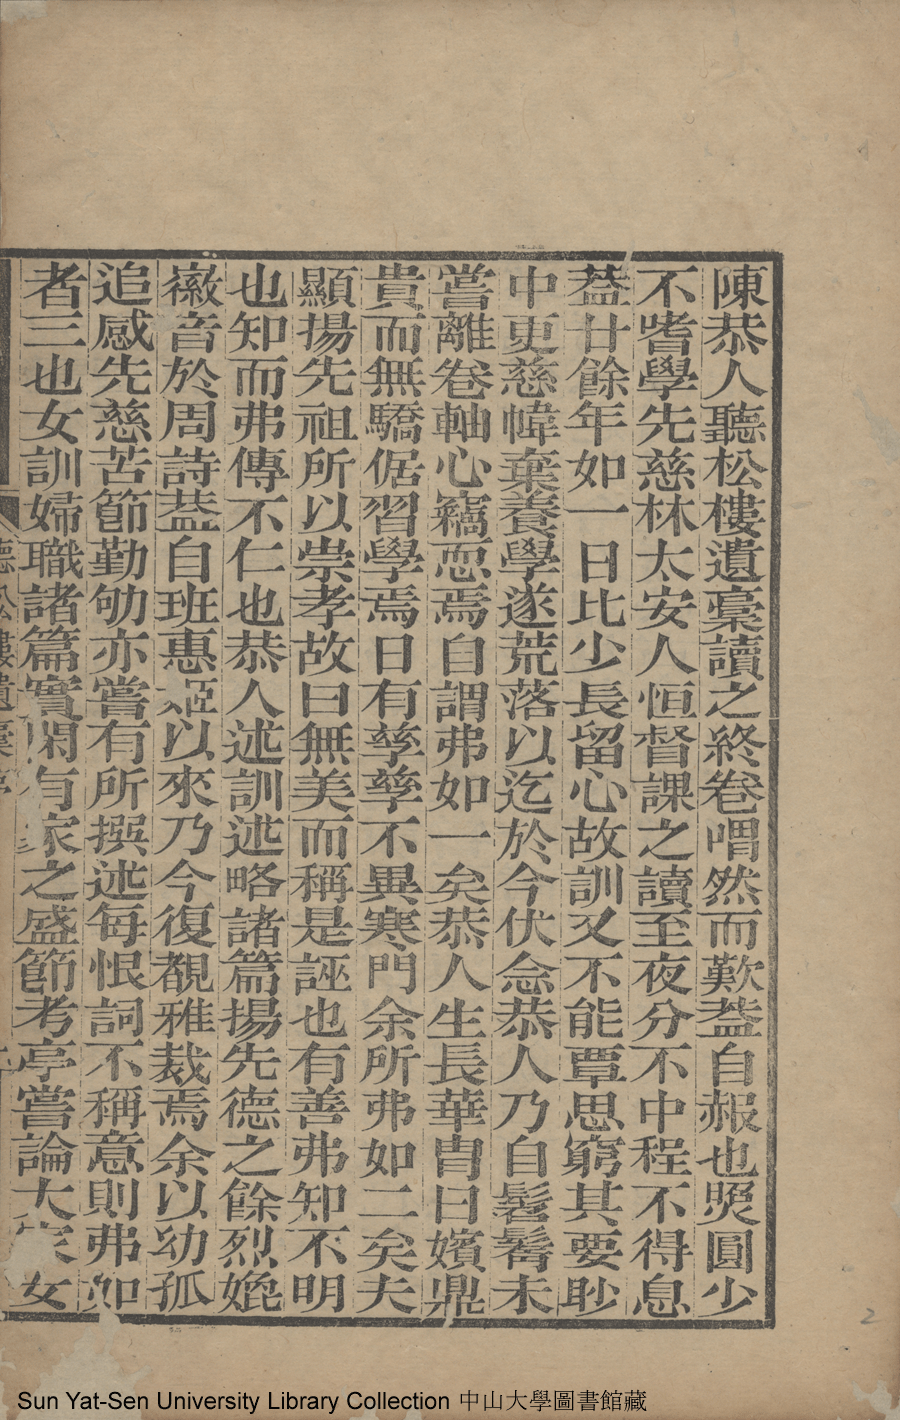 陳恭人聽松樓遺稾讀之終卷喟然而歎葢自赧也煚圓少
不嗜學先慈林太安人恒督課之讀至夜分不中程不得息
葢廿餘年如一日比少長留心故訓又不能覃思窮其要眇
中更慈幃棄養學遂荒落以迄於今伏念恭人乃自髫鬌未
嘗離卷軸心竊恧焉自謂弗如一矣恭人生長華胄曰嬪鼎
貴而無驕倨習學焉日有孳孳不異寒門余所弗如二矣夫
顯揚先祖所以崇孝故曰無美而稱是誣也有善弗知不明
也知而弗傳不仁也恭人述訓述略諸篇揚先德之餘烈娩
徽音於周詩葢自班惠姬以來乃今復覩雅裁焉余以幼孤
追感先慈苦節勤劬亦嘗有所撰述每恨詞不稱意則弗如
者三也女訓婦職諸篇實閑有家之盛節考亭嘗論大家女
聽松樓遺稾序
Sun Yat-Sen University Library Collection 中山大學圖書館藏
2